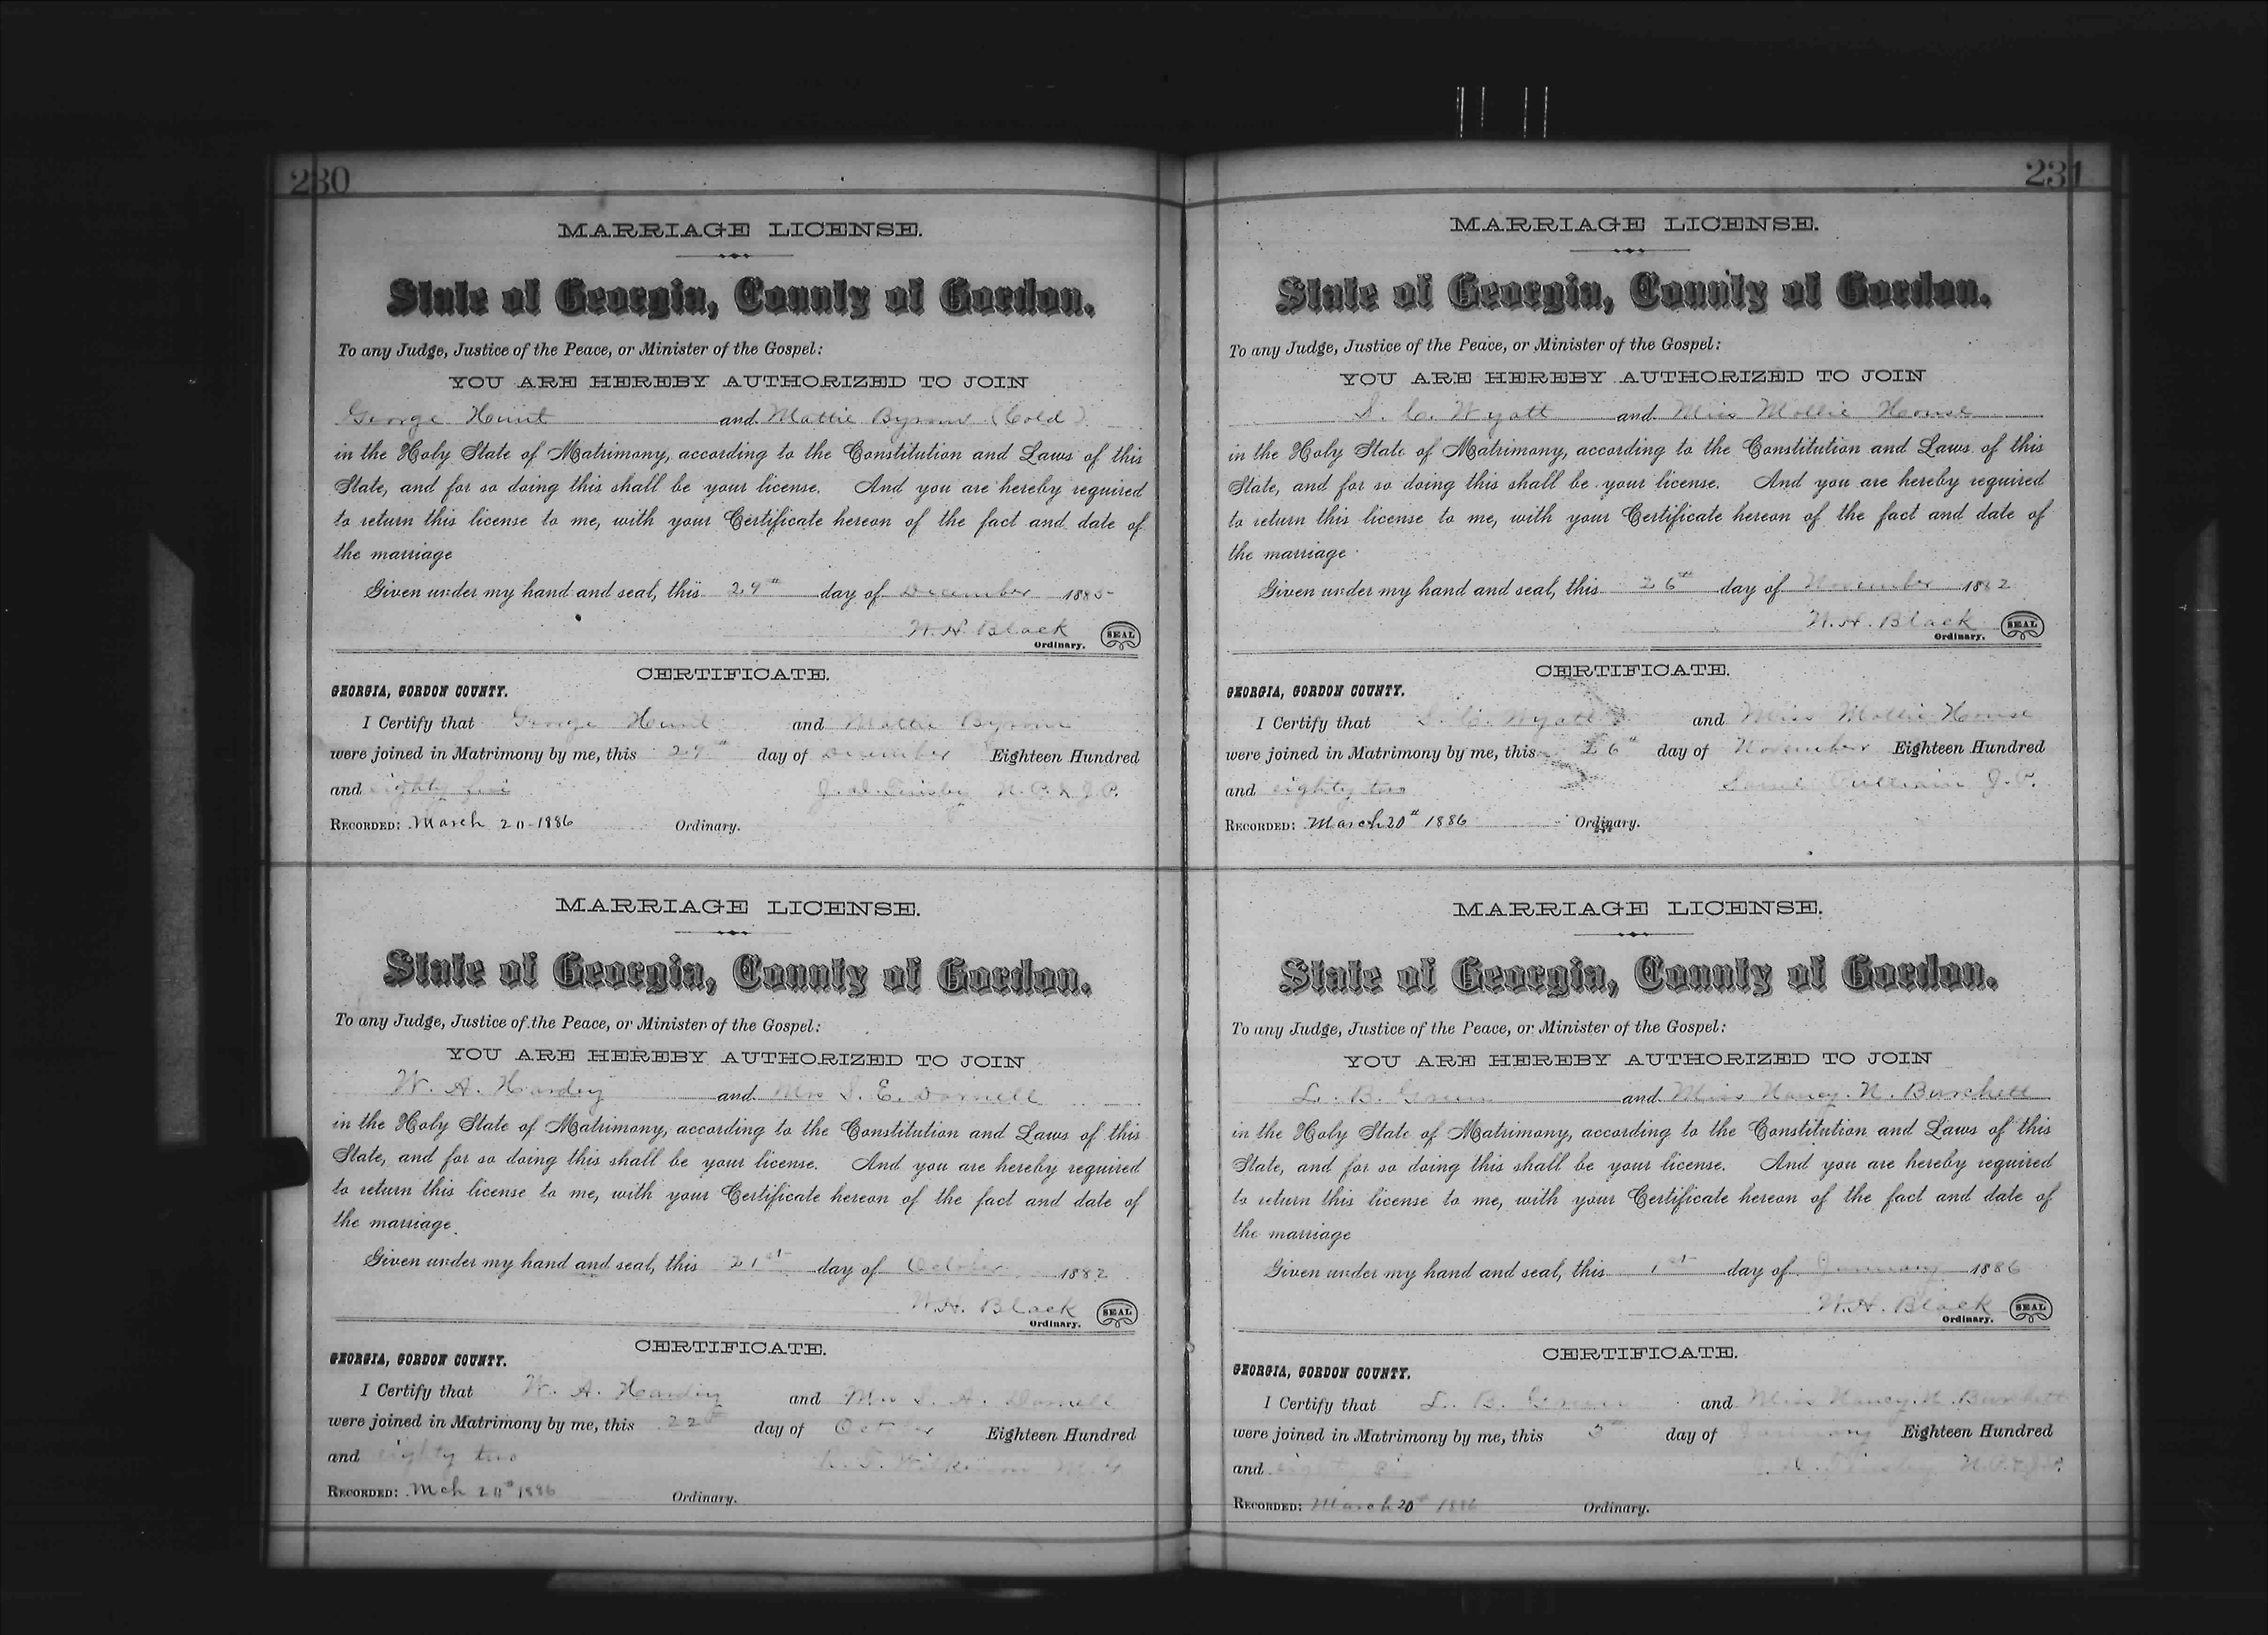 230
MARRIAGE LICENSE.
State of Georgia, County of Gordon.
To any Judge, Justice of the Peace, or Minister of the Gospel:
YOU ARE HEREBY AUTHORIZED TO JOIN
George Hunt and Mattie Byrom (Cold)
in the Holy State of Matrimony, according to the Constitution and Laws of this
State, and for so doing this shall be your license. And you are hereby required
to return this license to me, with your Certificate hereon of the fact and date of
the marriage
Given under my hand and seal, this 29th day of December 1885
W. H. Black
Ordinary. SEAL
CERTIFICATE.
GEORGIA, GORDON COUNTY.
I Certify that George Hunt and Mattie Byrom
were joined in Matrimony by me, this 29th day of December Eighteen Hundred
and eighty five N. P. & J. P.
RECORDED: March 20-1886 Ordinary.
MARRIAGE LICENSE.
State of Georgia, County of Gordon.
To any Judge, Justice of the Peace, or Minister of the Gospel:
YOU ARE HEREBY AUTHORIZED TO JOIN
W. A. Hardy and Mrs S. E. Darnell
in the Holy State of Matrimony, according to the Constitution and Laws of this
State, and for so doing this shall be your license. And you are hereby required
to return this license to me, with your Certificate hereon of the fact and date of
the marriage.
Given under my hand and seal, this 21st day of October 1882
W. H. Black
Ordinary. SEAL
CERTIFICATE.
GEORGIA, GORDON COUNTY.
I Certify that W. A. Hardy and Mrs S. A. Darnell
were joined in Matrimony by me, this 22 day of October Eighteen Hundred
and eighty two M. G.
RECORDED: Mch 20th 1886 Ordinary.
231
MARRIAGE LICENSE.
State of Georgia, County of Gordon.
To any Judge, Justice of the Peace, or Minister of the Gospel:
YOU ARE HEREBY AUTHORIZED TO JOIN
S. C. Wyatt and Miss Mollie House
in the Holy State of Matrimony, according to the Constitution and Laws of this
State, and for so doing this shall be your license. And you are hereby required
to return this license to me, with your Certificate hereon of the fact and date of
the marriage
Given under my hand and seal, this 26th day of November 1882
W. H. Black
Ordinary. SEAL
CERTIFICATE.
GEORGIA, GORDON COUNTY.
I Certify that S. C. Wyatt and Miss Mollie House
were joined in Matrimony by me, this 26th day of November Eighteen Hundred
and eighty two Saml Pulliam J. P.
RECORDED: March 20th 1886 Ordinary.
MARRIAGE LICENSE.
State of Georgia, County of Gordon.
To any Judge, Justice of the Peace, or Minister of the Gospel:
YOU ARE HEREBY AUTHORIZED TO JOIN
L. B. Green and Miss Nancy N. Burchett
in the Holy State of Matrimony, according to the Constitution and Laws of this
State, and for so doing this shall be your license. And you are hereby required
to return this license to me, with your Certificate hereon of the fact and date of
the marriage
Given under my hand and seal, this 1st day of January 1886
W. H. Black
Ordinary. SEAL
CERTIFICATE.
GEORGIA, GORDON COUNTY.
I Certify that L. B. Green and Miss Nancy N. Burchett
were joined in Matrimony by me, this 3rd day of January Eighteen Hundred
and eighty six N. P. & J. P.
RECORDED: March 20th 1886 Ordinary.